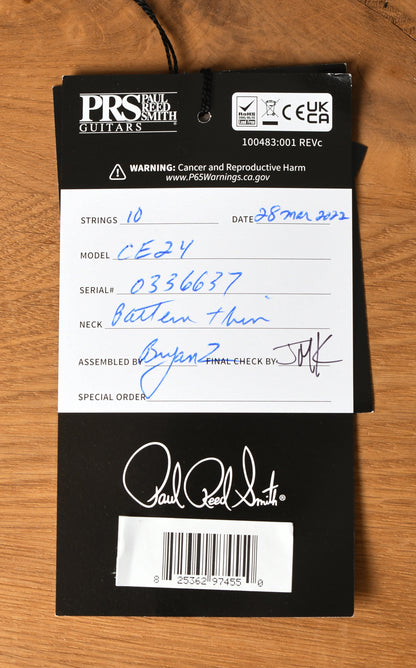 PRS PAUL REED SMITH
GUITARS
RoHS
CE UKCA
100483:001 REVc
WARNING: Cancer and Reproductive Harm
www.P65Warnings.ca.gov
STRINGS 10 DATE 28 Mar 2022
MODEL CE24
SERIAL# 0336637
NECK Pattern thin
ASSEMBLED BY Bryan Z FINAL CHECK BY: JMK
SPECIAL ORDER
Paul Reed Smith®
8 25362 97455 0